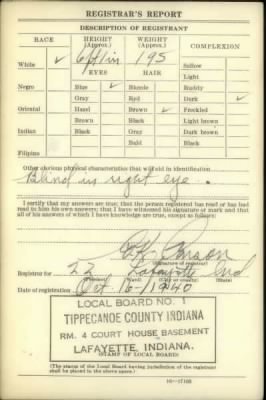 REGISTRAR'S REPORT
DESCRIPTION OF REGISTRANT
RACE
HEIGHT (Approx.)
WEIGHT (Approx.)
COMPLEXION
White ✓
6 ft 1 in
195
Sallow
EYES
HAIR
Light
Negro
Blue ✓
Blonde
Ruddy
Gray
Red
Dark ✓
Oriental
Hazel
Brown ✓
Freckled
Brown
Black
Light brown
Indian
Black
Gray
Dark brown
Bald
Black
Filipino
Other obvious physical characteristics that will aid in identification
Blind in right eye.
I certify that my answers are true; that the person registered has read or has had
read to him his own answers; that I have witnessed his signature or mark and that
all of his answers of which I have knowledge are true, except as follows:
(Signature of registrar)
Registrar for 22 Lafayette Ind
Date of registration Oct. 16/1940
LOCAL BOARD NO. 1
TIPPECANOE COUNTY INDIANA
RM. 4 COURT HOUSE BASEMENT
LAFAYETTE, INDIANA.
(STAMP OF LOCAL BOARD)
(The stamp of the Local Board having jurisdiction of the registrant
shall be placed in the above space.)